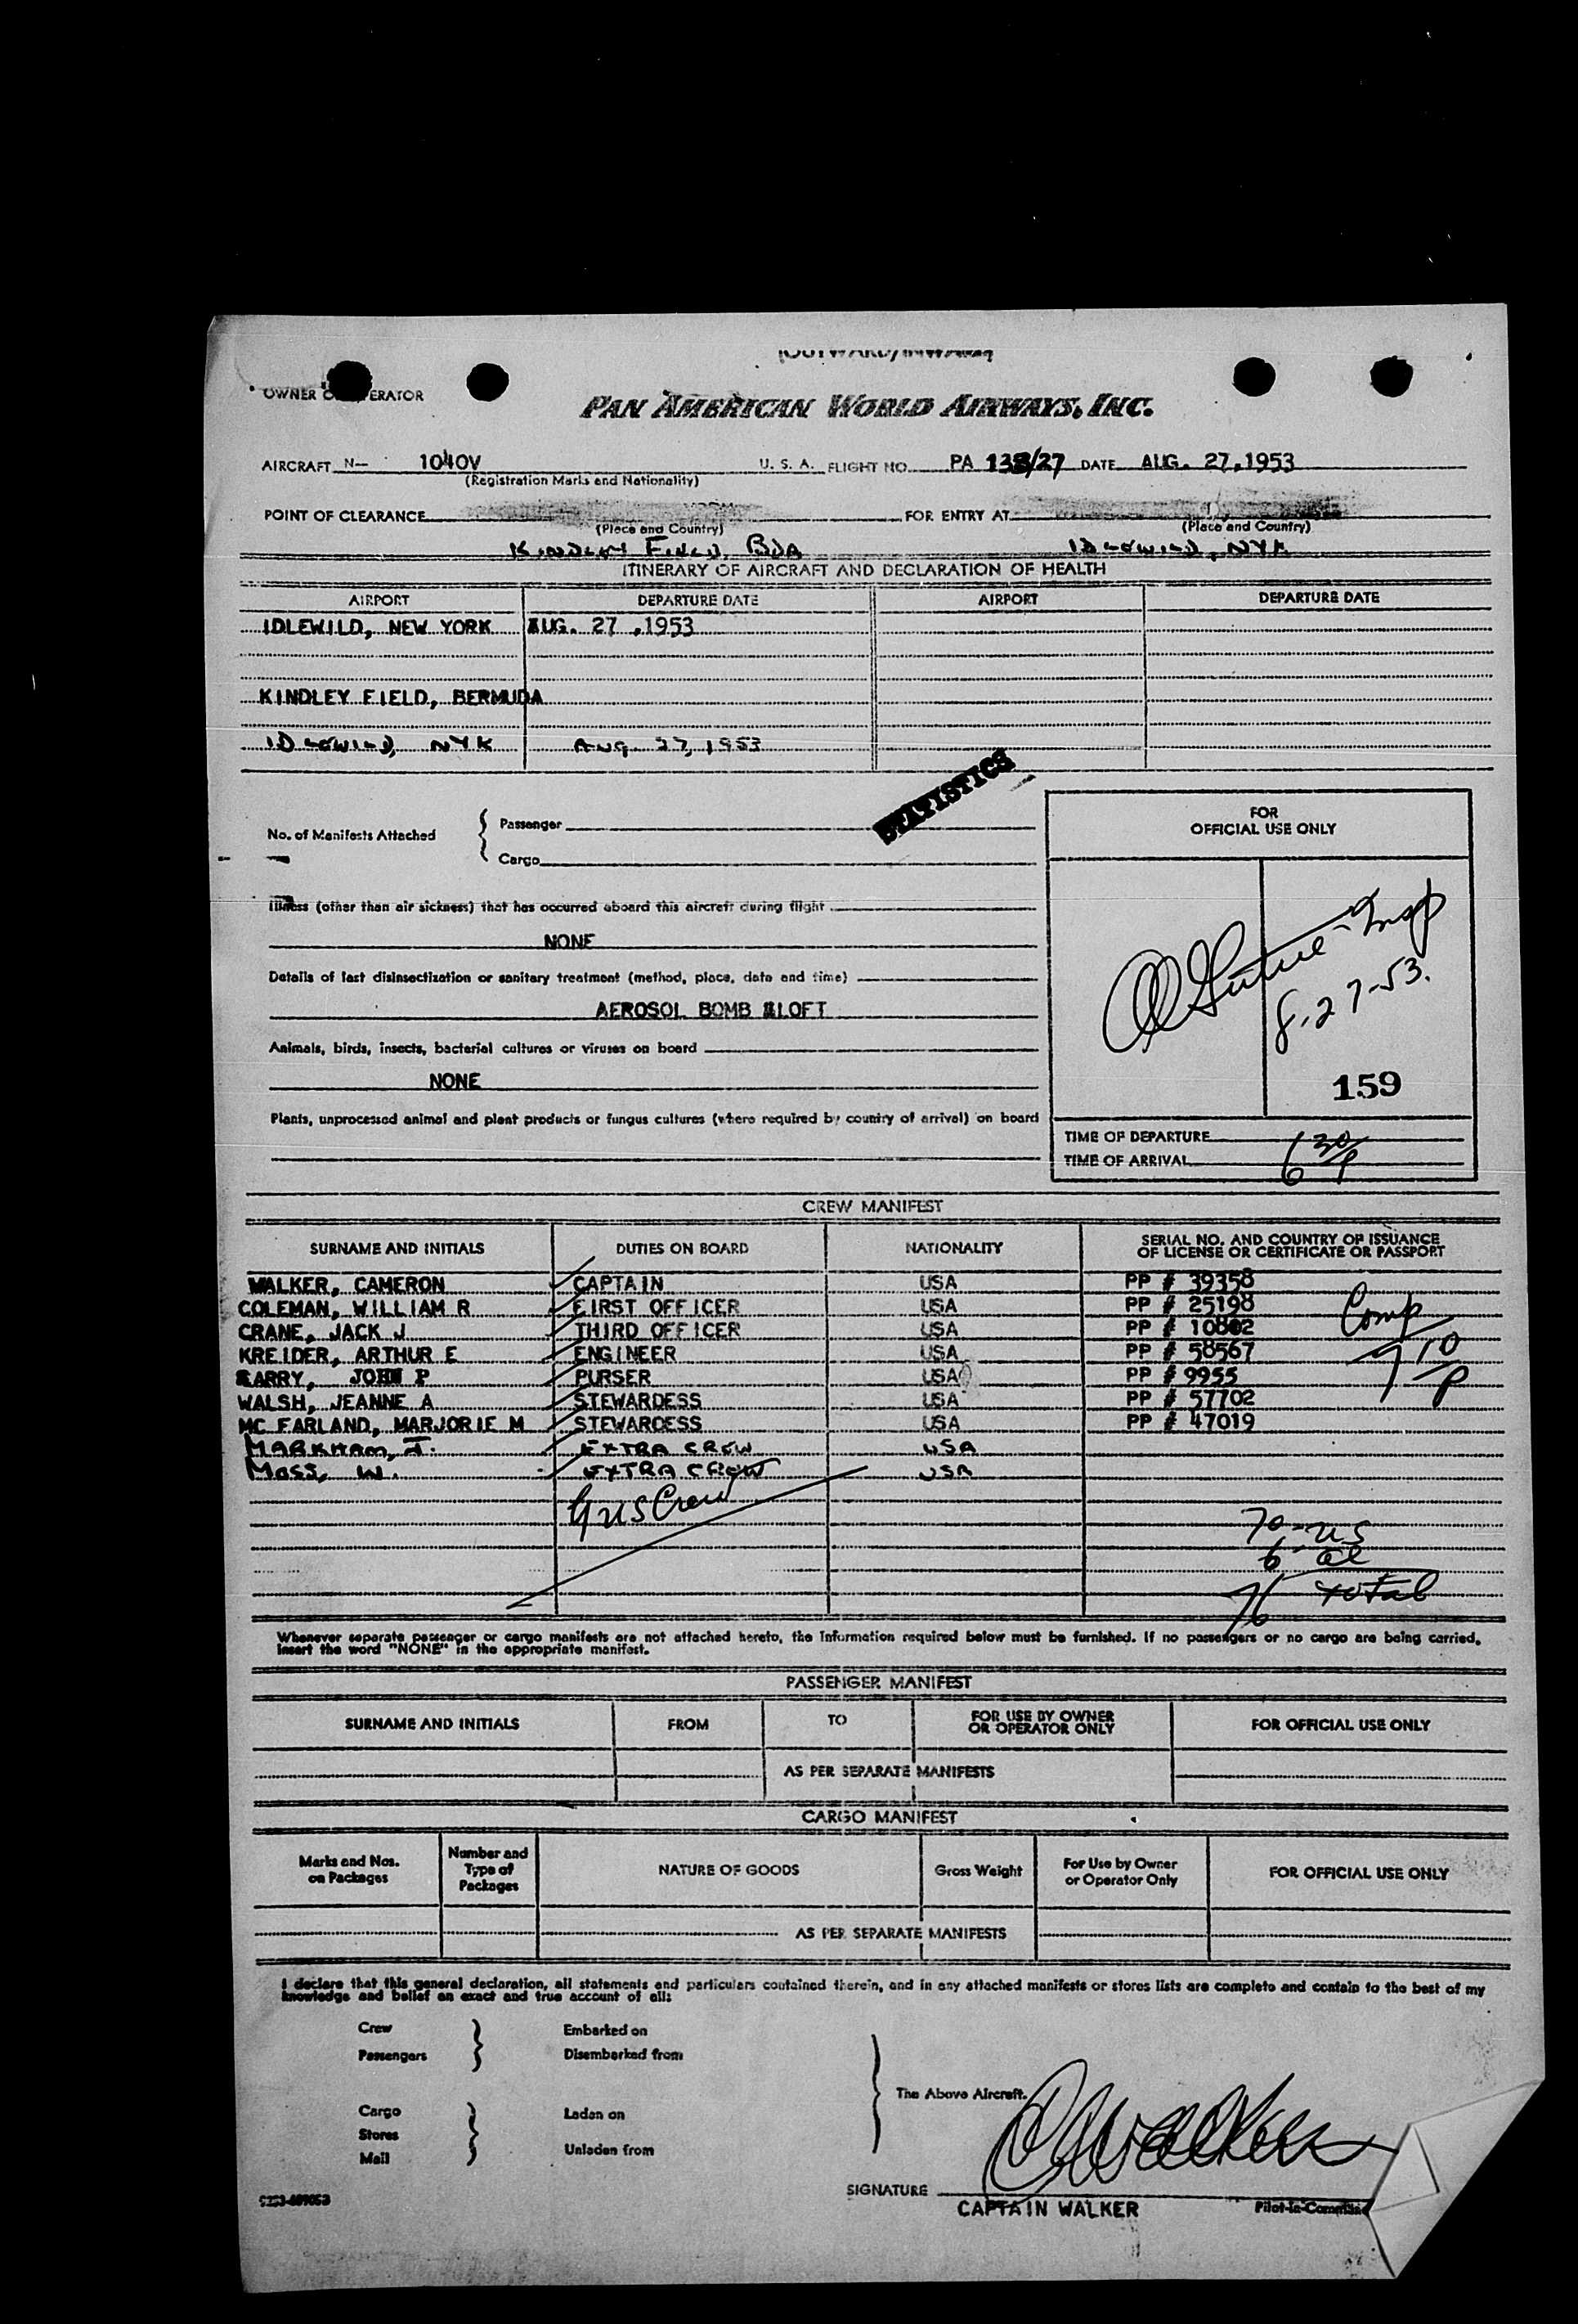 (OUTWARD/INWARD)
OWNER OR OPERATOR
PAN AMERICAN WORLD AIRWAYS, INC.
AIRCRAFT N— 1040V U. S. A. FLIGHT NO. PA 138/27 DATE AUG. 27,1953
(Registration Marks and Nationality)
POINT OF CLEARANCE FOR ENTRY AT
(Place and Country) (Place and Country)
KINDLEY FIELD, BDA IDLEWILD, NYK
ITINERARY OF AIRCRAFT AND DECLARATION OF HEALTH
AIRPORT DEPARTURE DATE AIRPORT DEPARTURE DATE
IDLEWILD, NEW YORK AUG. 27 ,1953
KINDLEY FIELD, BERMUDA
IDLEWILD, NYK AUG. 27, 1953
STATISTICS
No. of Manifests Attached { Passenger
Cargo
FOR
OFFICIAL USE ONLY
Illness (other than air sickness) that has occurred aboard this aircraft during flight
NONE
Details of last disinsectization or sanitary treatment (method, place, date and time)
AEROSOL BOMB ALOFT
Animals, birds, insects, bacterial cultures or viruses on board
NONE
Plants, unprocessed animal and plant products or fungus cultures (where required by country of arrival) on board
Insp
8-27-53.
159
TIME OF DEPARTURE
TIME OF ARRIVAL 6 30/P
CREW MANIFEST
SURNAME AND INITIALS DUTIES ON BOARD NATIONALITY SERIAL NO. AND COUNTRY OF ISSUANCE
OF LICENSE OR CERTIFICATE OR PASSPORT
WALKER, CAMERON CAPTAIN USA PP # 39358
COLEMAN, WILLIAM R FIRST OFFICER USA PP # 25198
CRANE, JACK J THIRD OFFICER USA PP # 10802
KREIDER, ARTHUR E ENGINEER USA PP # 58567
BARRY, JOHN P PURSER USA PP # 9955
WALSH, JEANNE A STEWARDESS USA PP # 57702
MC FARLAND, MARJORIE M STEWARDESS USA PP # 47019
MARKHAM, J. EXTRA CREW USA
MOSS, W. EXTRA CREW USA
Comp
7 10/P
9 US Crew
70-US
6-al
76 total
Whenever separate passenger or cargo manifests are not attached hereto, the information required below must be furnished. If no passengers or no cargo are being carried,
insert the word "NONE" in the appropriate manifest.
PASSENGER MANIFEST
SURNAME AND INITIALS FROM TO FOR USE BY OWNER
OR OPERATOR ONLY FOR OFFICIAL USE ONLY
AS PER SEPARATE MANIFESTS
CARGO MANIFEST
Marks and Nos.
on Packages Number and
Type of
Packages NATURE OF GOODS Gross Weight For Use by Owner
or Operator Only FOR OFFICIAL USE ONLY
AS PER SEPARATE MANIFESTS
I declare that this general declaration, all statements and particulars contained therein, and in any attached manifests or stores lists are complete and contain to the best of my
knowledge and belief an exact and true account of all:
Crew Embarked on
Passengers Disembarked from
The Above Aircraft.
Cargo Laden on
Stores
Mail Unladen from
C Walker
SIGNATURE
CAPTAIN WALKER Pilot-in-Command